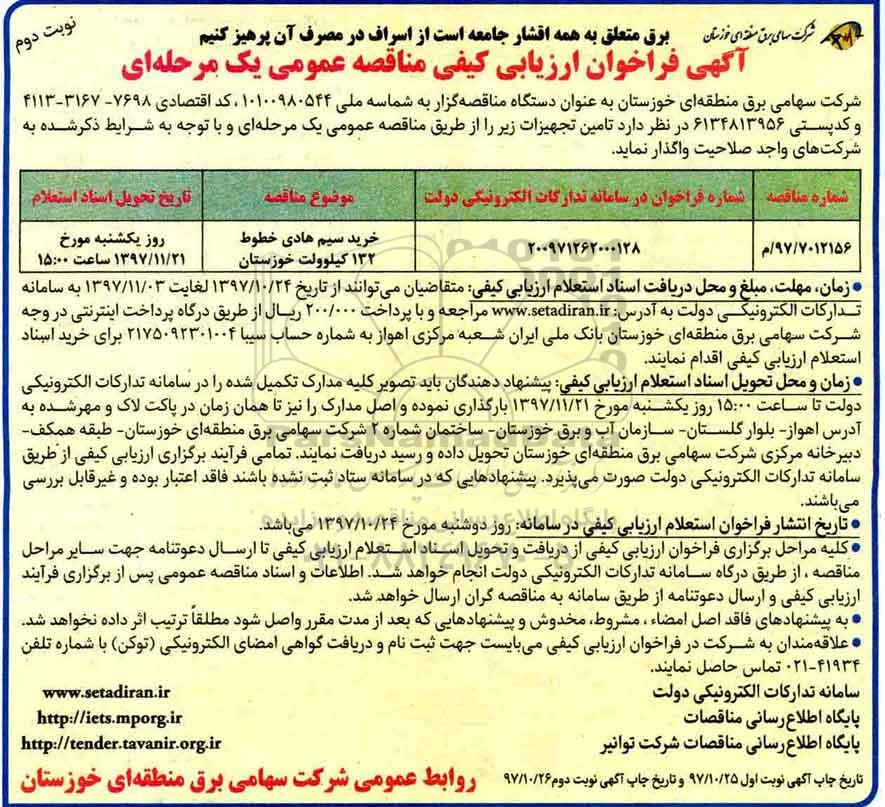 نوبت دوم
شرکت سهامی برق منطقه‌ای خوزستان
برق متعلق به همه اقشار جامعه است از اسراف در مصرف آن پرهیز کنیم
آگهی فراخوان ارزیابی کیفی مناقصه عمومی یک مرحله‌ای
شرکت سهامی برق منطقه‌ای خوزستان به عنوان دستگاه مناقصه‌گزار به شماسه ملی ۱۰۱۰۰۹۸۰۵۴۴ ، کد اقتصادی ۷۶۹۸- ۳۱۶۷-۴۱۱۳
و کدپستی ۶۱۳۴۸۱۳۹۵۶ در نظر دارد تامین تجهیزات زیر را از طریق مناقصه عمومی یک مرحله‌ای و با توجه به شرایط ذکرشده به
شرکت‌های واجد صلاحیت واگذار نماید.
شماره مناقصه شماره فراخوان در سامانه تدارکات الکترونیکی دولت موضوع مناقصه تاریخ تحویل اسناد استعلام
۹۷/۷۰۱۲۱۵۶/م ۲۰۰۹۷۱۲۶۲۰۰۰۱۲۸ خرید سیم هادی خطوط روز یکشنبه مورخ
۱۳۲ کیلوولت خوزستان ۱۳۹۷/۱۱/۲۱ ساعت ۱۵:۰۰
• زمان، مهلت، مبلغ و محل دریافت اسناد استعلام ارزیابی کیفی: متقاضیان می‌توانند از تاریخ ۱۳۹۷/۱۰/۲۴ لغایت ۱۳۹۷/۱۱/۰۳ به سامانه
تدارکات الکترونیکی دولت به آدرس: www.setadiran.ir مراجعه و با پرداخت ۲۰۰/۰۰۰ ریال از طریق درگاه پرداخت اینترنتی در وجه
شرکت سهامی برق منطقه‌ای خوزستان بانک ملی ایران شعبه مرکزی اهواز به شماره حساب سیبا ۲۱۷۵۰۹۲۳۰۱۰۰۴ برای خرید اسناد
استعلام ارزیابی کیفی اقدام نمایند.
• زمان و محل تحویل اسناد استعلام ارزیابی کیفی: پیشنهاد دهندگان باید تصویر کلیه مدارک تکمیل شده را در سامانه تدارکات الکترونیکی
دولت تا ساعت ۱۵:۰۰ روز یکشنبه مورخ ۱۳۹۷/۱۱/۲۱ بارگذاری نموده و اصل مدارک را نیز تا همان زمان در پاکت لاک و مهرشده به
آدرس اهواز- بلوار گلستان- سازمان آب و برق خوزستان- ساختمان شماره ۲ شرکت سهامی برق منطقه‌ای خوزستان- طبقه همکف-
دبیرخانه مرکزی شرکت سهامی برق منطقه‌ای خوزستان تحویل داده و رسید دریافت نمایند. تمامی فرآیند برگزاری ارزیابی کیفی از طریق
سامانه تدارکات الکترونیکی دولت صورت می‌پذیرد. پیشنهادهایی که در سامانه ستاد ثبت نشده باشند فاقد اعتبار بوده و غیرقابل بررسی
می‌باشند.
• تاریخ انتشار فراخوان استعلام ارزیابی کیفی در سامانه: روز دوشنبه مورخ ۱۳۹۷/۱۰/۲۴ می‌باشد.
• کلیه مراحل برگزاری فراخوان ارزیابی کیفی از دریافت و تحویل اسناد استعلام ارزیابی کیفی تا ارسال دعوتنامه جهت سایر مراحل
مناقصه ، از طریق درگاه سامانه تدارکات الکترونیکی دولت انجام خواهد شد. اطلاعات و اسناد مناقصه عمومی پس از برگزاری فرآیند
ارزیابی کیفی و ارسال دعوتنامه از طریق سامانه به مناقصه گران ارسال خواهد شد.
• به پیشنهادهای فاقد اصل امضاء ، مشروط، مخدوش و پیشنهادهایی که بعد از مدت مقرر واصل شود مطلقاً ترتیب اثر داده نخواهد شد.
• علاقه‌مندان به شرکت در فراخوان ارزیابی کیفی می‌بایست جهت ثبت نام و دریافت گواهی امضای الکترونیکی (توکن) با شماره تلفن
۰۲۱-۴۱۹۳۴ تماس حاصل نمایند.
سامانه تدارکات الکترونیکی دولت www.setadiran.ir
پایگاه اطلاع‌رسانی مناقصات http://iets.mporg.ir
پایگاه اطلاع‌رسانی مناقصات شرکت توانیر http://tender.tavanir.org.ir
تاریخ چاپ آگهی نوبت اول ۹۷/۱۰/۲۵ و تاریخ چاپ آگهی نوبت دوم ۹۷/۱۰/۲۶
روابط عمومی شرکت سهامی برق منطقه‌ای خوزستان